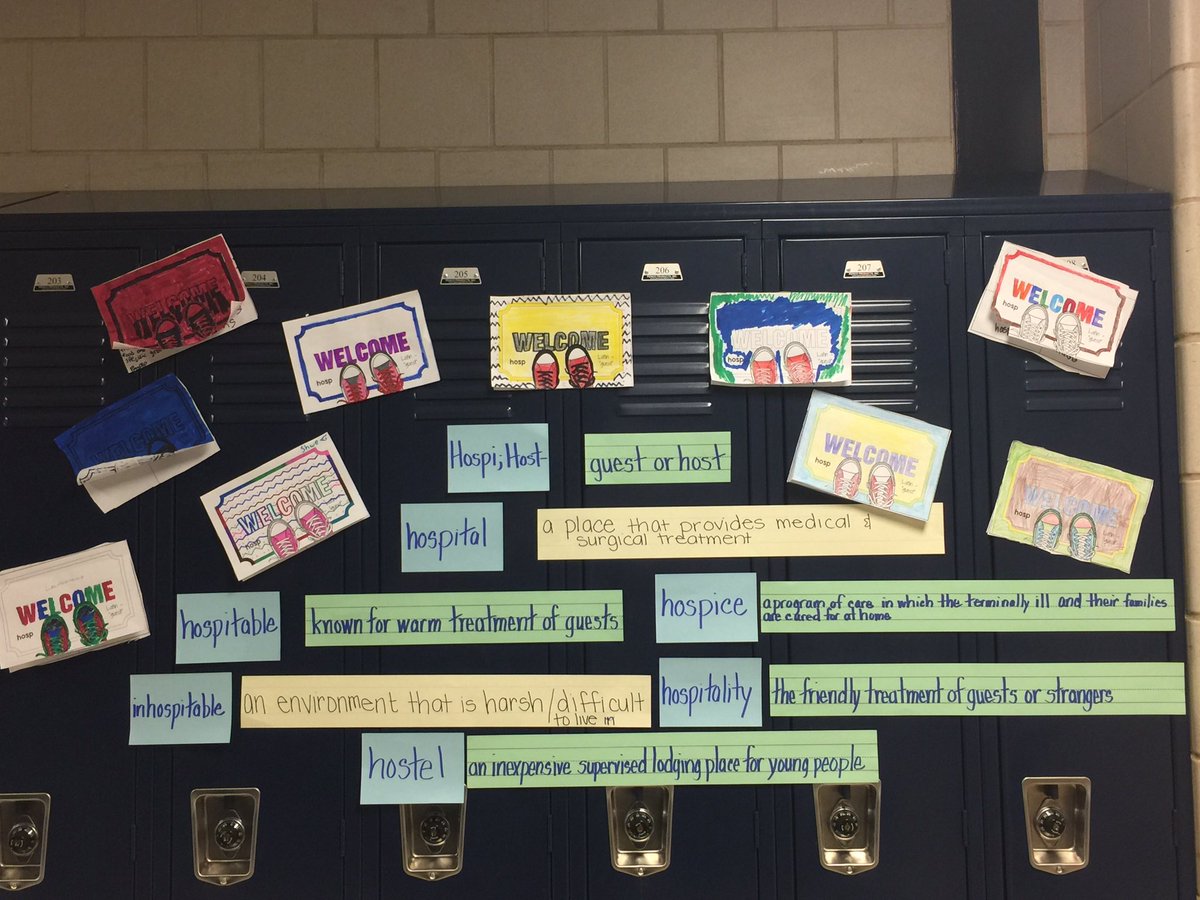 203
204
205
206
207
WELCOME
WELCOME
hosp
Latin -
"guest"
WELCOME
hosp
Latin -
"guest"
WELCOME
hosp
WELCOME
hosp
WELCOME
WELCOME
WELCOME
hosp
Latin -
"guest"
WELCOME
hosp
WELCOME
hosp
Latin -
"guest"
Hospi; Host-
guest or host
hospital
a place that provides medical &
surgical treatment
hospitable
known for warm treatment of guests
hospice
a program of care in which the terminally ill and their families
are cared for at home
inhospitable
an environment that is harsh/difficult
to live in
hospitality
the friendly treatment of guests or strangers
hostel
an inexpensive supervised lodging place for young people